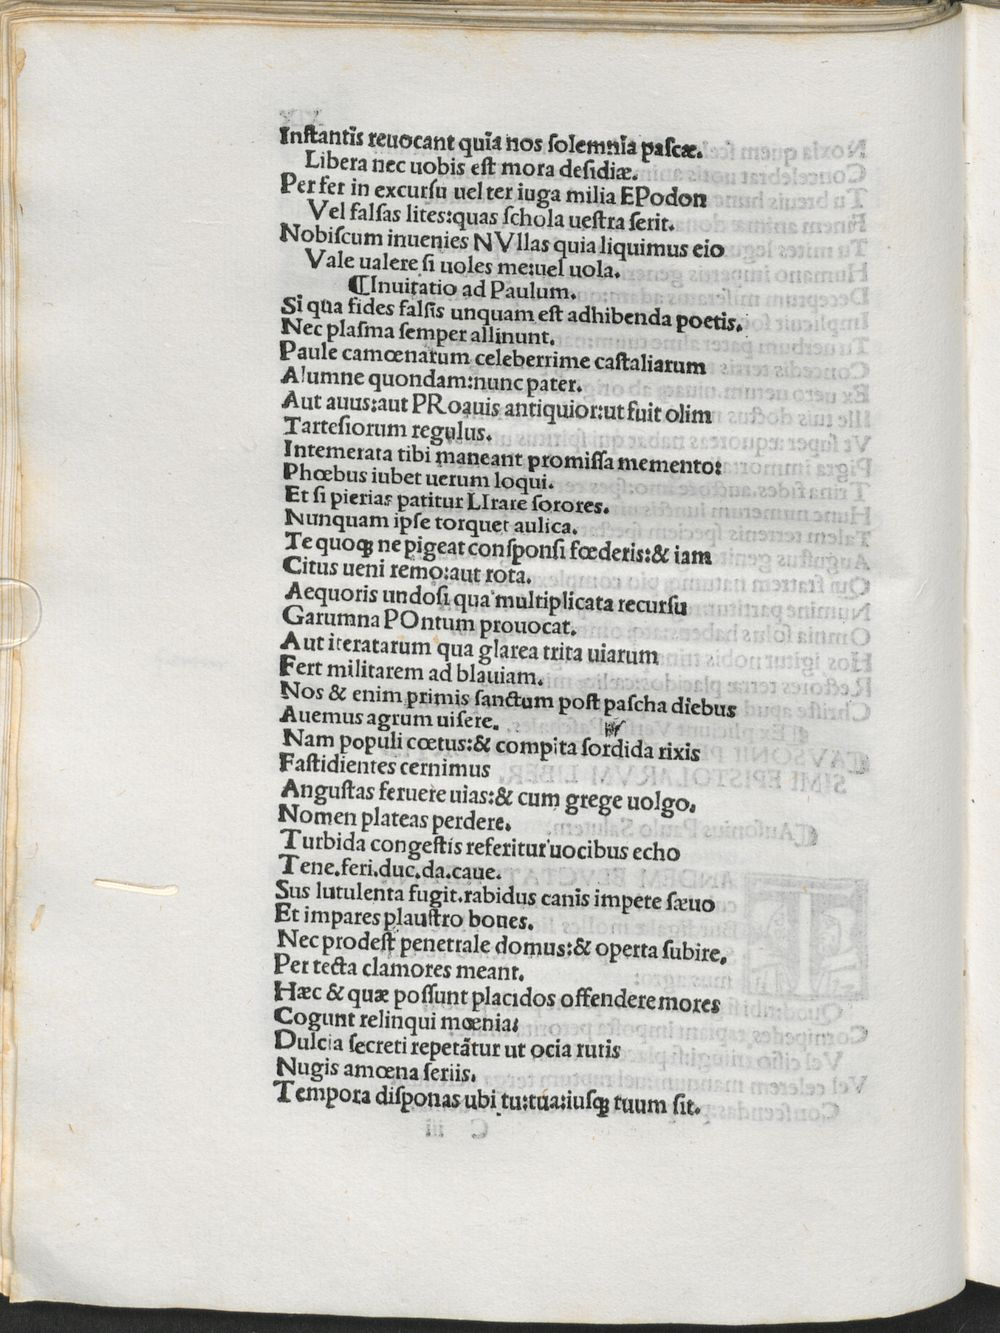 Inſtantis reuocant quia nos ſolemnia paſcæ.
Libera nec uobis eſt mora deſidiæ.
Perfer in excurſu uel ter iuga milia EPodon
Vel falſas lites:quas ſchola ueſtra ſerit.
Nobiſcum inuenies NVllas quia liquimus eio
Vale ualere ſi uoles me:uel uola.
¶Inuitatio ad Paulum.
Si qua fides falſis unquam eſt adhibenda poetis.
Nec plaſma ſemper allinunt.
Paule camœnarum celeberrime caſtaliarum
Alumne quondam:nunc pater.
Aut auus:aut PRoauis antiquior:ut fuit olim
Tarteſiorum regulus.
Intemerata tibi maneant promiſſa memento:
Phœbus iubet uerum loqui.
Et ſi pierias patitur LIrare ſorores.
Nunquam ipſe torquet aulica.
Te quoqꝫ ne pigeat conſponſi fœderis:& iam
Citus ueni remo:aut rota.
Aequoris undoſi qua multiplicata recurſu
Garumna POntum prouocat.
Aut iteratarum qua glarea trita uiarum
Fert militarem ad blauiam.
Nos & enim primis ſanctum poſt paſcha diebus
Auemus agrum uiſere.
Nam populi cœtus:& compita ſordida rixis
Faſtidientes cernimus
Anguſtas feruere uias:& cum grege uolgo.
Nomen plateas perdere.
Turbida congeſtis referitur uocibus echo
Tene.feri.duc.da.caue.
Sus lutulenta fugit.rabidus canis impete ſæuo
Et impares plauſtro boues.
Nec prodeſt penetrale domus:& operta ſubire.
Per tecta clamores meant.
Hæc & quæ poſſunt placidos offendere mores
Cogunt relinqui mœnia:
Dulcia ſecreti repetãtur ut ocia rutis
Nugis amœna ſeriis.
Tempora diſponas ubi tu:tua:iuſqꝫ tuum ſit.